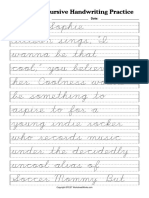 ursive Handwriting Practice
Date
Sophie
Ellison sings, "I
wanna be that
cool," you believe
her. Coolness will
be something to
aspire to for a
young indie rocker
who records music
under the decidedly
uncool alias of
Soccer Mommy. But